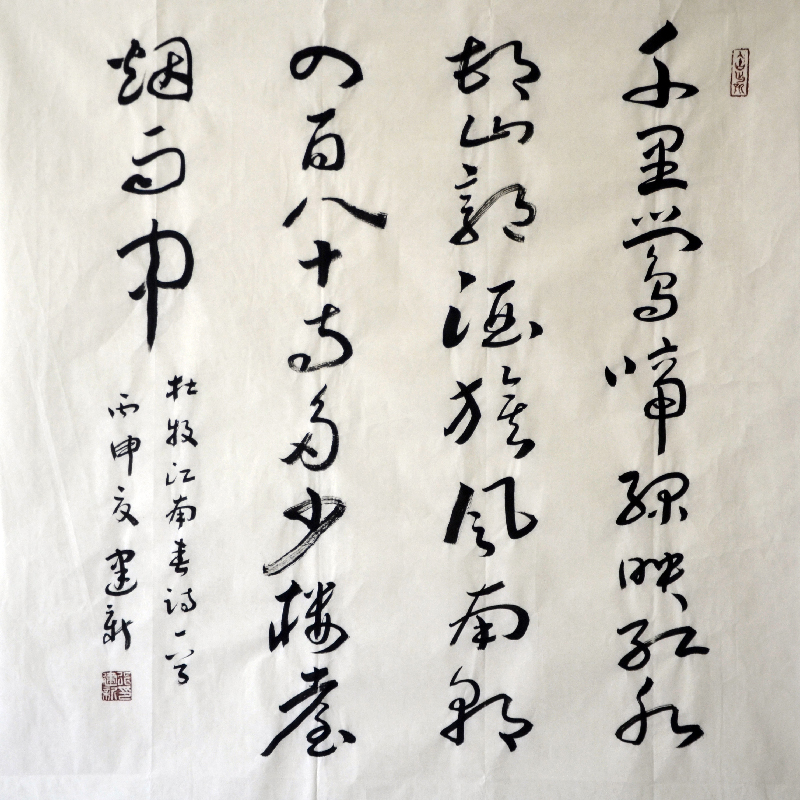 千里鶯啼綠映紅水
邨山郭酒旗風南朝
四百八十寺多少樓臺
烟雨中
杜牧江南春詩一首
丙申夏建新